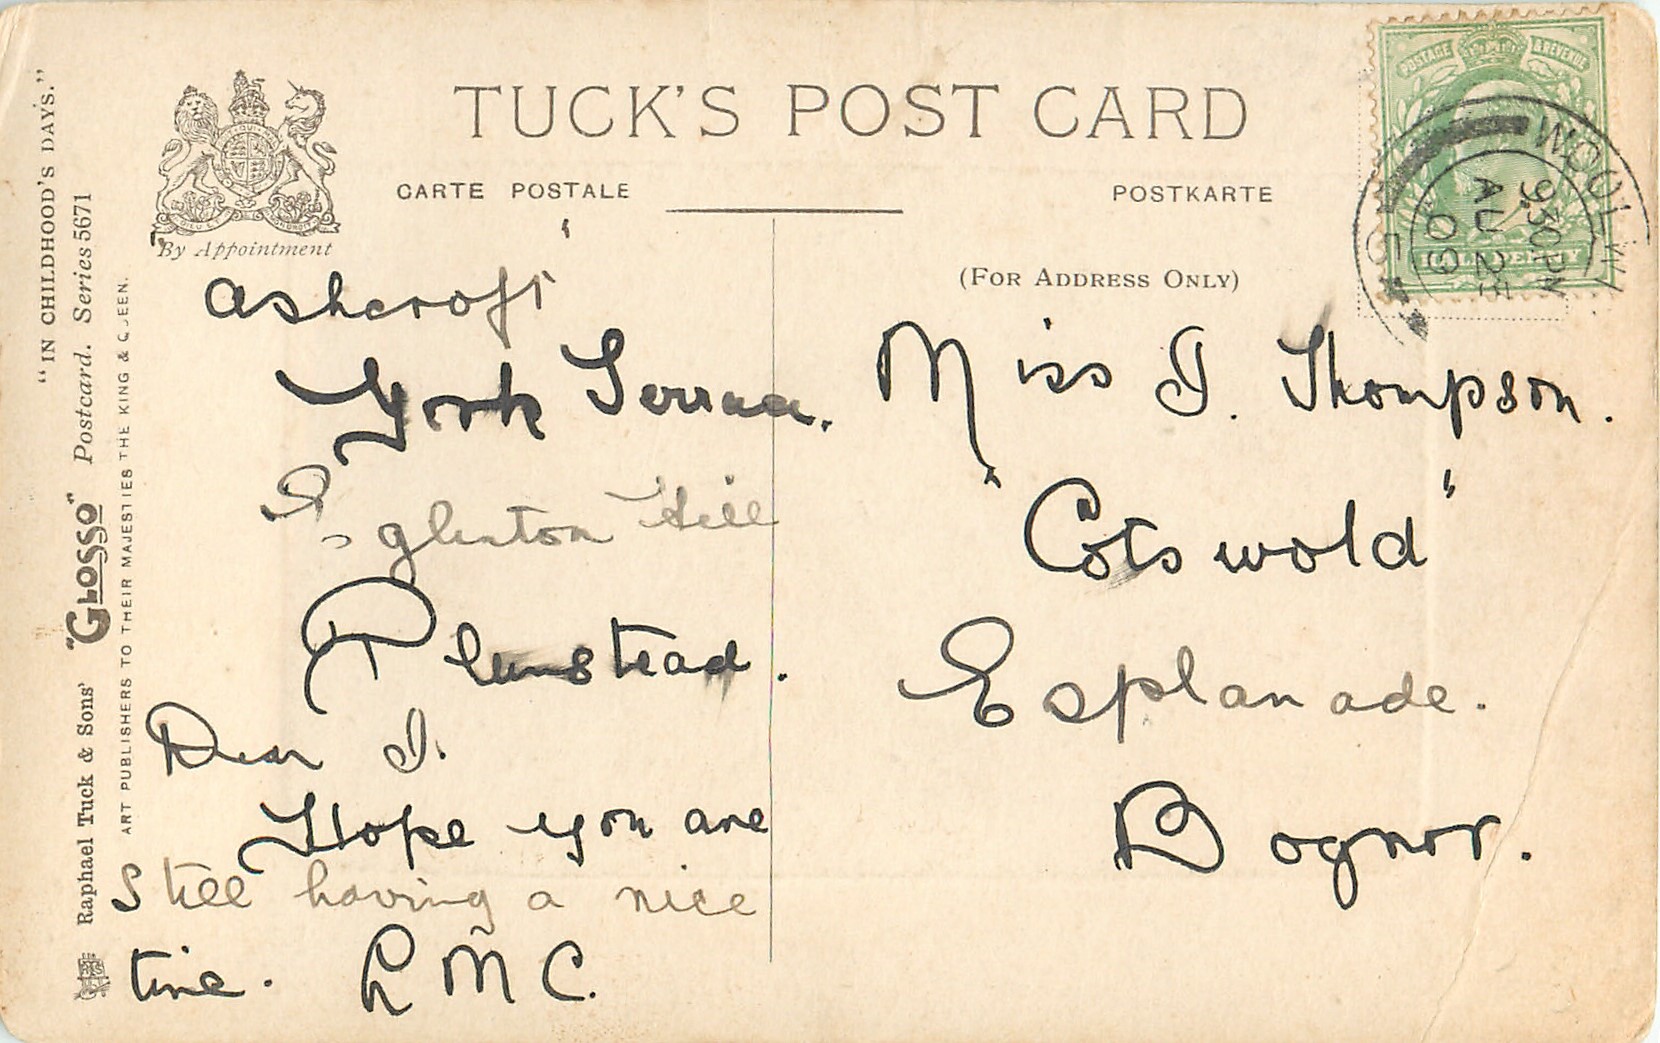 TUCK'S POST CARD
CARTE POSTALE
POSTKARTE
By Appointment
(FOR ADDRESS ONLY)
"IN CHILDHOOD'S DAYS."
Raphael Tuck & Sons' "GLOSSO" Postcard. Series 5671
ART PUBLISHERS TO THEIR MAJESTIES THE KING & QUEEN.
POSTAGE & REVENUE
HALFPENNY
WOOLW
9.30PM
AU 2
09
"Ashcroft"
York Terrace.
Eglinton Hill
Plumstead.
Dear I.
Hope you are
still having a nice
time. L M C.
Miss I. Thompson.
"Cotswold"
Esplanade.
Bognor.